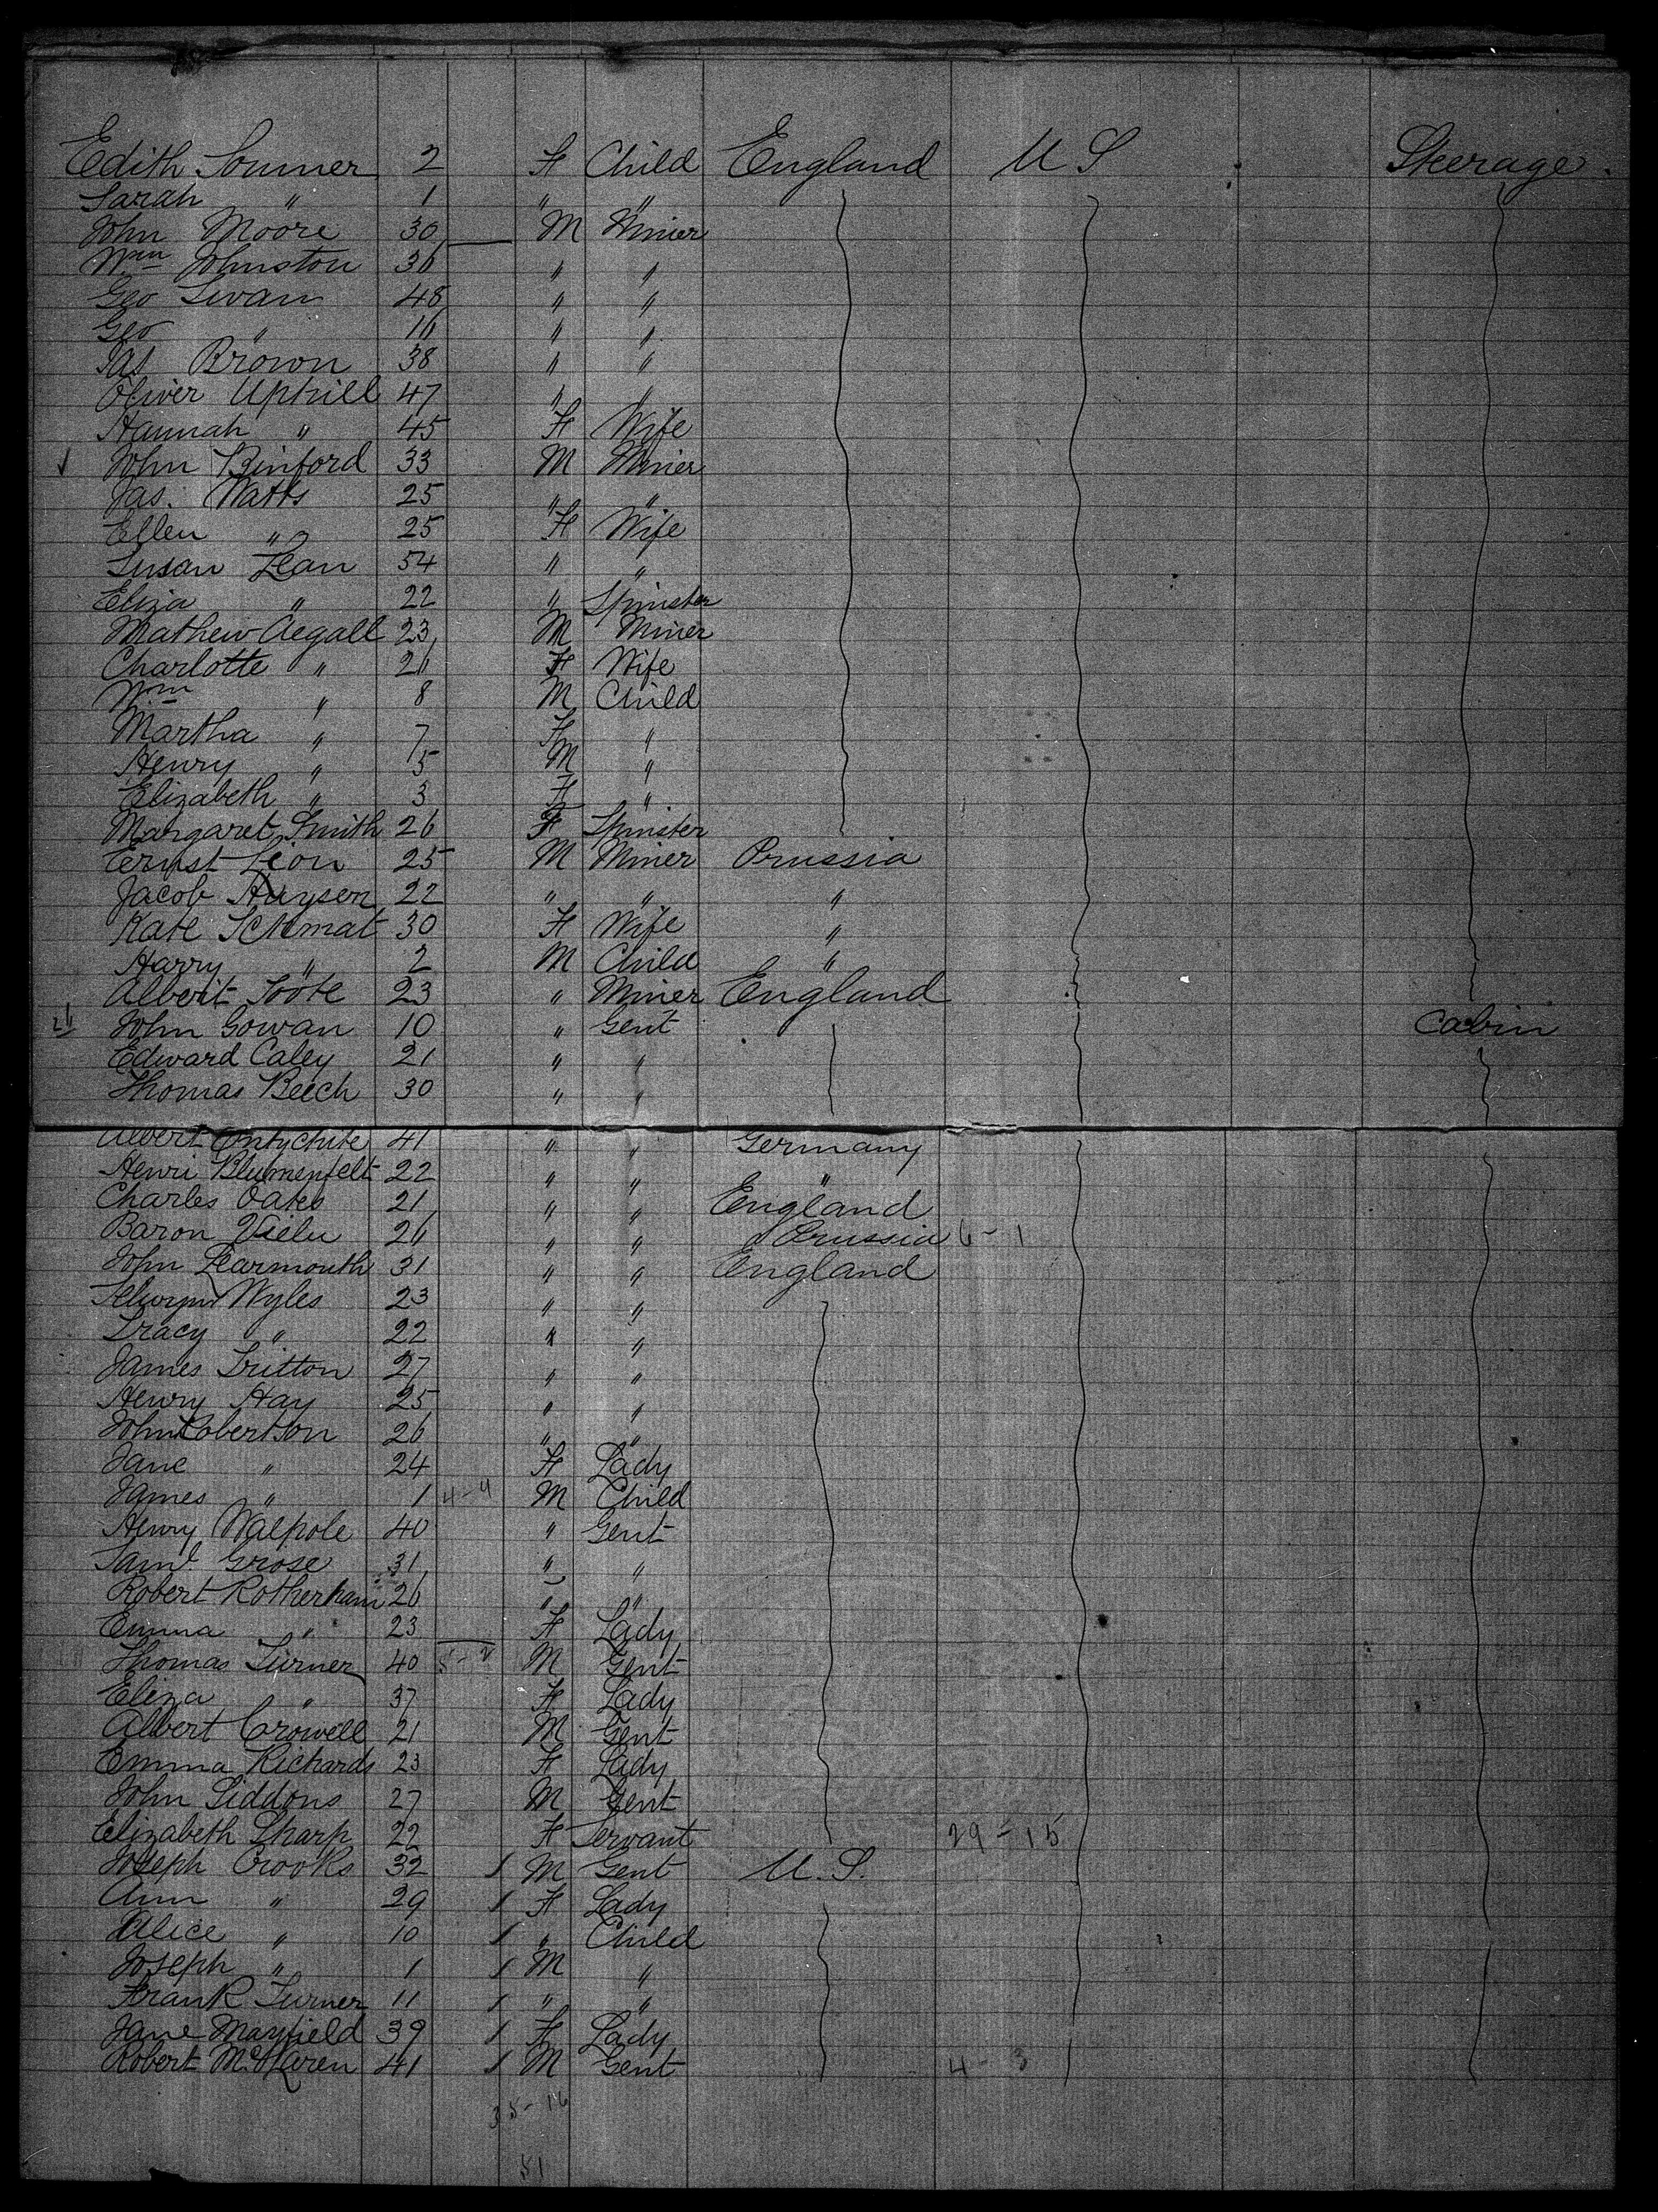 Edith Sommer 2 F Child England U S Steerage
Sarah " 1 " "
John Moore 30 M Miner
Wm Johnston 36 " "
Geo Swan 48 " "
Geo " 16 " "
Jas Brown 38 " "
Oliver Uphill 47 " "
Hannah " 45 F Wife
John Binford 33 M Miner
Jas. Watts 25 " "
Ellen " 25 F Wife
Susan Lean 54 " "
Eliza " 22 " Spinster
Mathew Aegall 23 M Miner
Charlotte " 26 F Wife
Wm " 8 M Child
Martha " 7 F "
Henry " 5 M "
Elizabeth " 3 F "
Margaret Smith 26 F Spinster
Ernst Leon 25 M Miner Prussia
Jacob Huysen 22 " " "
Kate Schmat 30 F Wife "
Harry " 2 M Child "
Albert Foote 23 " Miner England
John Gowan 10 " Gent Cabin
Edward Caley 21 " "
Thomas Beech 30 " "
Albert 41 " " Germany
Henri Blumenfelt 22 " " "
Charles Oates 21 " " England
Baron 26 " " Prussia 6-1
John Learmouth 31 " " England
Selwyn Wyles 23 " "
Tracy " 22 " "
James Tritton 27 " "
Henry Hay 25 " "
John Robertson 26 " "
Jane " 24 F Lady
James " 1 4-4 M Child
Henry Walpole 40 " Gent
Saml Grose 31 " "
Robert Rotherham 26 " "
Emma " 23 F Lady
Thomas Turner 40 5-2 M Gent
Eliza " 37 F Lady
Albert Crowell 21 M Gent
Emma Richards 23 F Lady
John Siddons 27 M Gent
Elizabeth Sharp 22 F Servant 29-15
Joseph Crooks 32 1 M Gent U.S.
Ann " 29 1 F Lady
Alice " 10 1 " Child
Joseph " 1 1 M "
Frank Turner 11 1 " "
Jane Mayfield 39 1 F Lady
Robert McKaren 41 1 M Gent 4-3
35-16
51